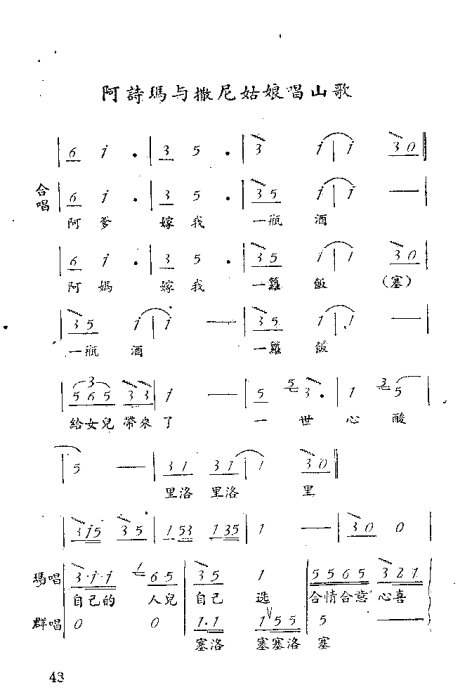 阿詩瑪与撒尼姑娘唱山歌
6 i · | 3 5 · | 3 i | i 3 0 ‖
合唱 | 6 i · | 3 5 · | 3 5 i | i — |
阿爹 嫁我 一瓶 酒
| 6 i · | 3 5 · | 3 5 i | i 3 0 |
阿媽 嫁我 一籮 飯 (塞)
| 3 5 i | i — | 3 5 i | i — |
一瓶 酒 一籮 飯
| 5 6 5 3 3 | i — | 5 5 3 · | 1 3 5 |
給女兒帶來 了 一 世 心 酸
5 — | 3 1 3 1 | 1 3 0 ‖
里洛 里洛 里
| 3 1 5 3 5 | 1 5 3 1 3 5 | 1 — | 3 0 0 |
瑪唱 | 3 · i · i 6 5 | 3 5 1 | 5 5 6 5 3 2 1
自己的 人兒 自己 选 合情合意 心喜
群唱 0 0 | 1 · 1 1 5 5 | 5 —
塞洛 塞塞洛 塞
43